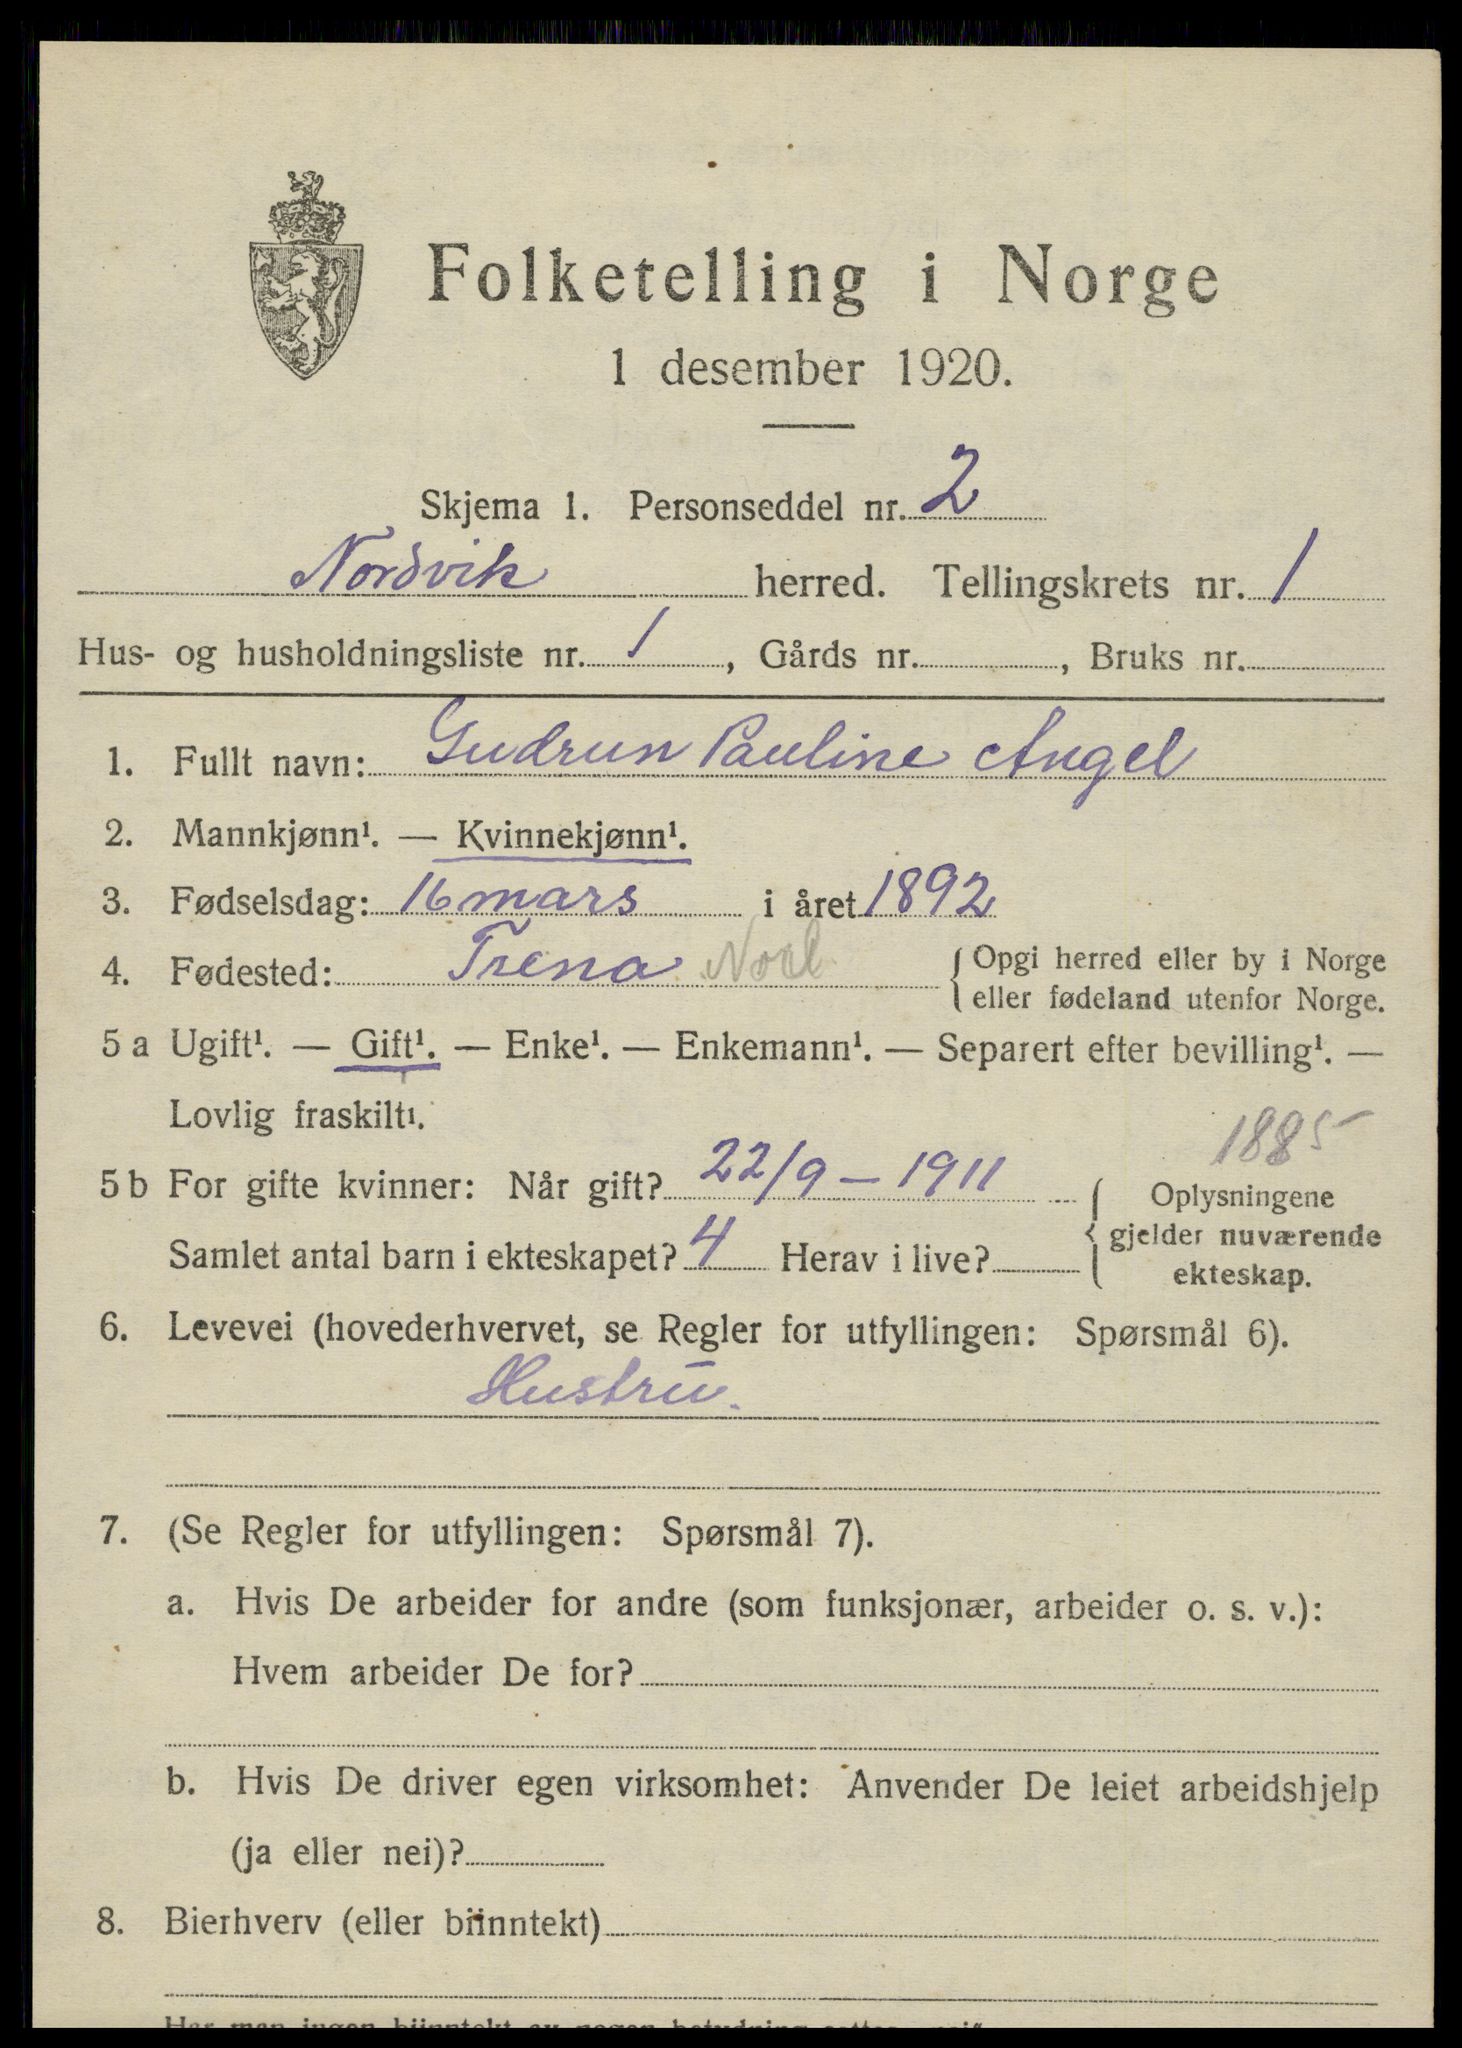 Folketelling i Norge
1 desember 1920.
Skjema 1. Personseddel nr. 2
Nordvik herred. Tellingskrets nr. 1
Hus- og husholdningsliste nr. 1, Gårds nr. , Bruks nr.
1. Fullt navn: Gudrun Pauline Angel
2. Mannkjønn¹. — Kvinnekjønn¹.
3. Fødselsdag: 16 mars i året 1892
4. Fødested: Trena Nordl { Opgi herred eller by i Norge
eller fødeland utenfor Norge.
5 a Ugift¹. — Gift¹. — Enke¹. — Enkemann¹. — Separert efter bevilling¹. —
Lovlig fraskilt¹.
1885
5 b For gifte kvinner: Når gift? 22/9 – 1911 { Oplysningene
gjelder nuværende
Samlet antal barn i ekteskapet? 4 Herav i live?
ekteskap.
6. Levevei (hovederhvervet, se Regler for utfyllingen: Spørsmål 6).
Hustru.
7. (Se Regler for utfyllingen: Spørsmål 7).
a. Hvis De arbeider for andre (som funksjonær, arbeider o. s. v.):
Hvem arbeider De for?
b. Hvis De driver egen virksomhet: Anvender De leiet arbeidshjelp
(ja eller nei)?
8. Bierhverv (eller biinntekt)